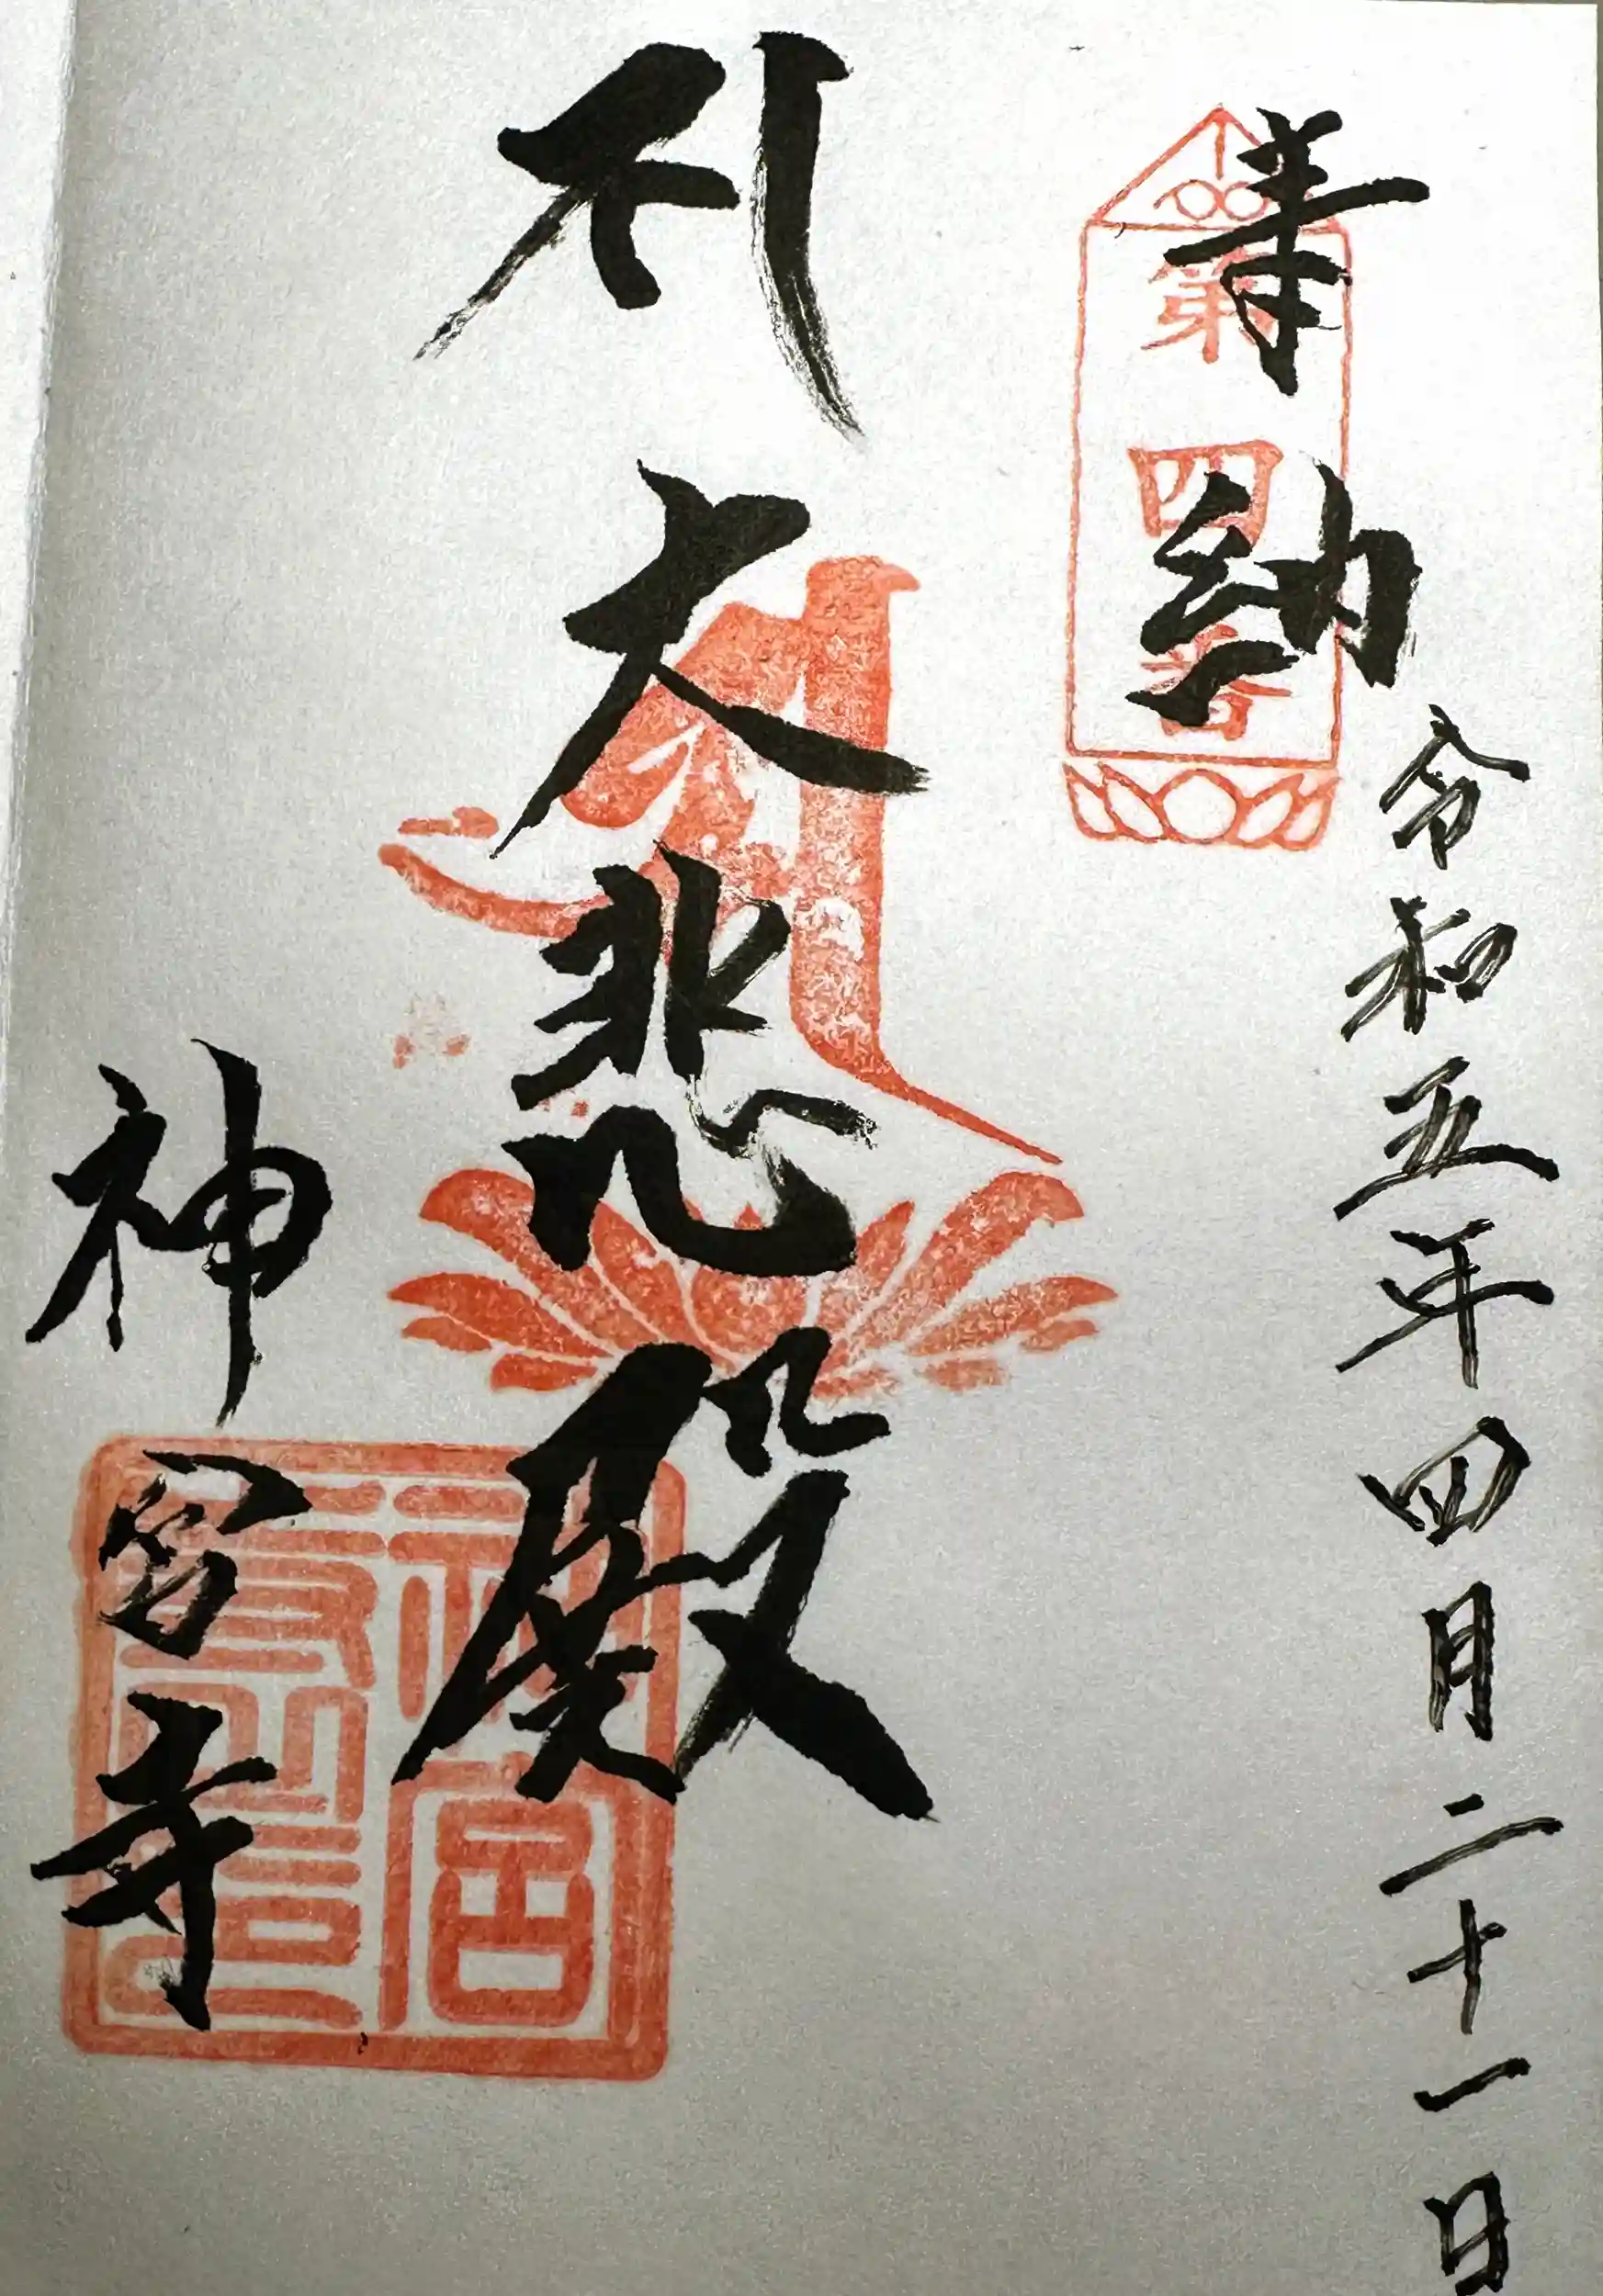 奉納
令和五年四月二十一日
第四番
大悲殿
神宮寺